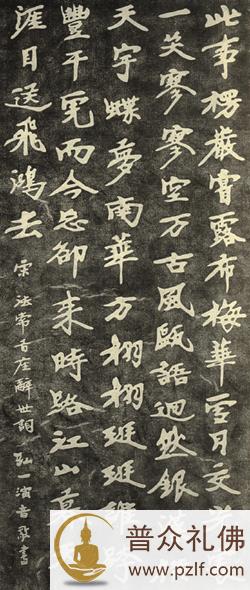 此事楞嚴嘗露布梅華雪月交光處
一笑寥寥空万古風甌語迥然銀
天宇蝶夢南華方栩栩班班誰跨
豐干虎而今忘卻來時路江山暮
涯目送飛鴻去
宋法常首座辭世詞 弘一演音敬書
普众礼佛
www.pzlf.com